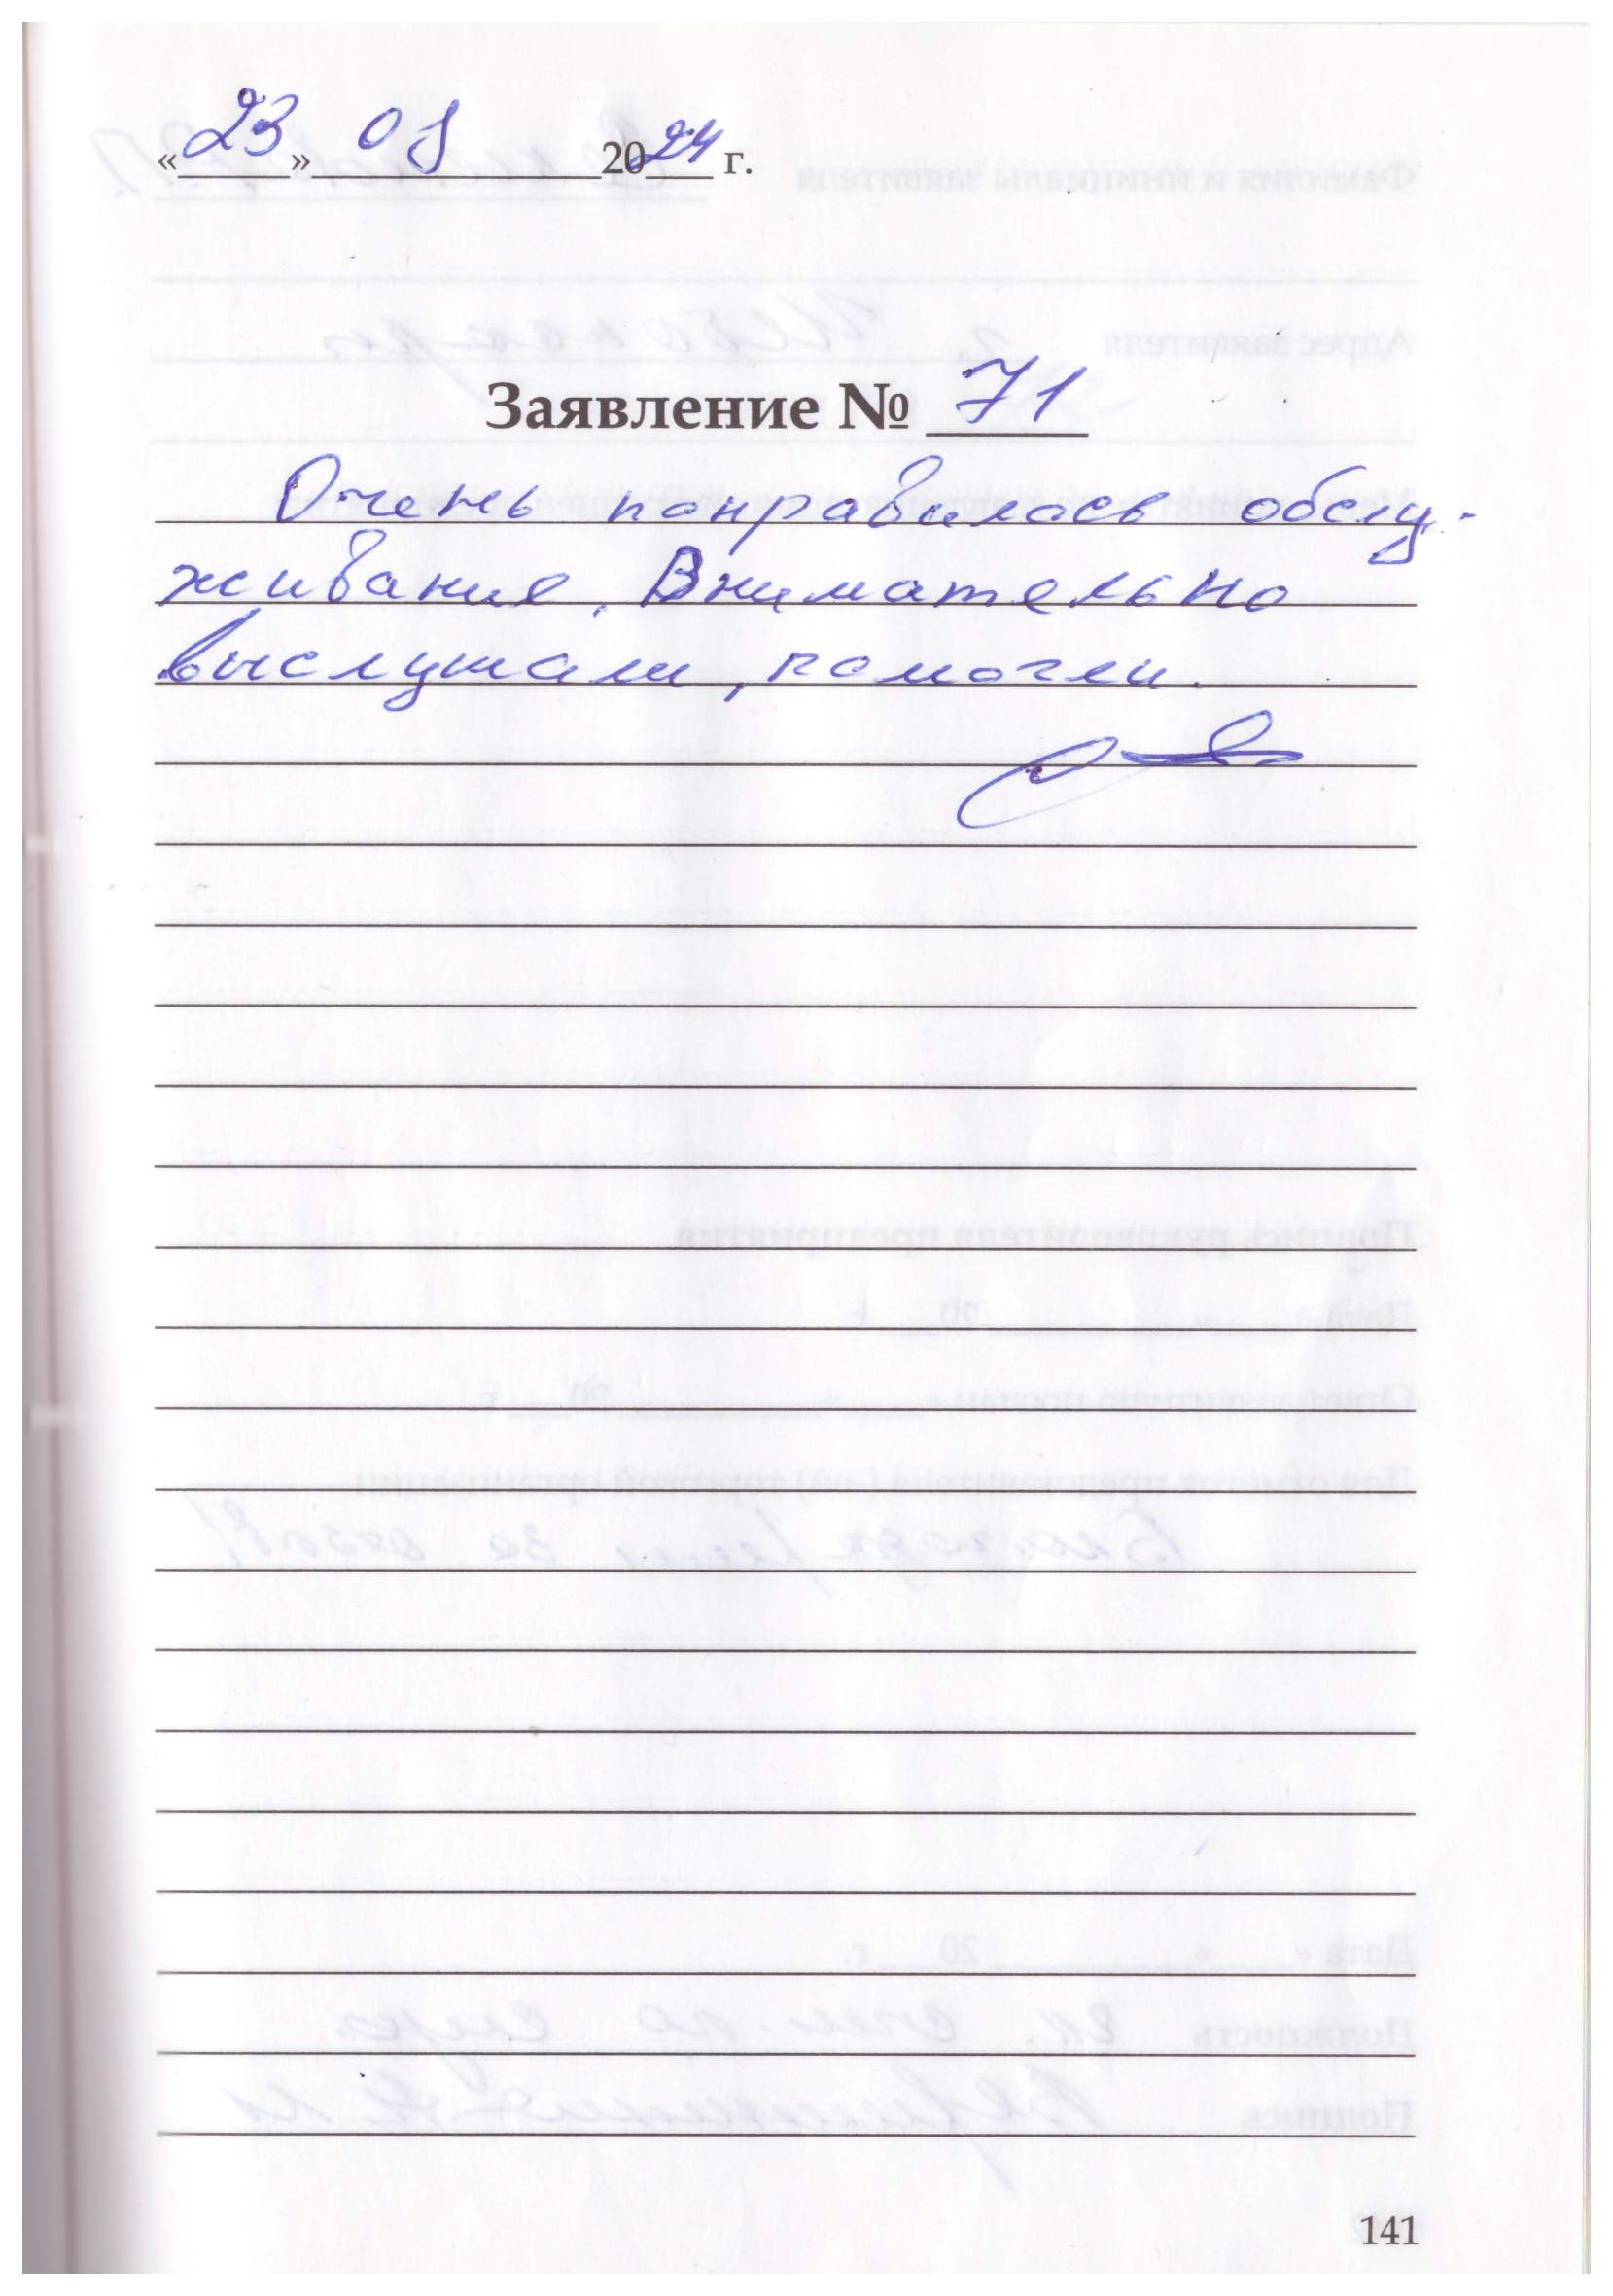 «23» 08 2024 г.
Заявление № 71
Очень понравилось обслу-
живание. Внимательно
выслушали, помогли.
141